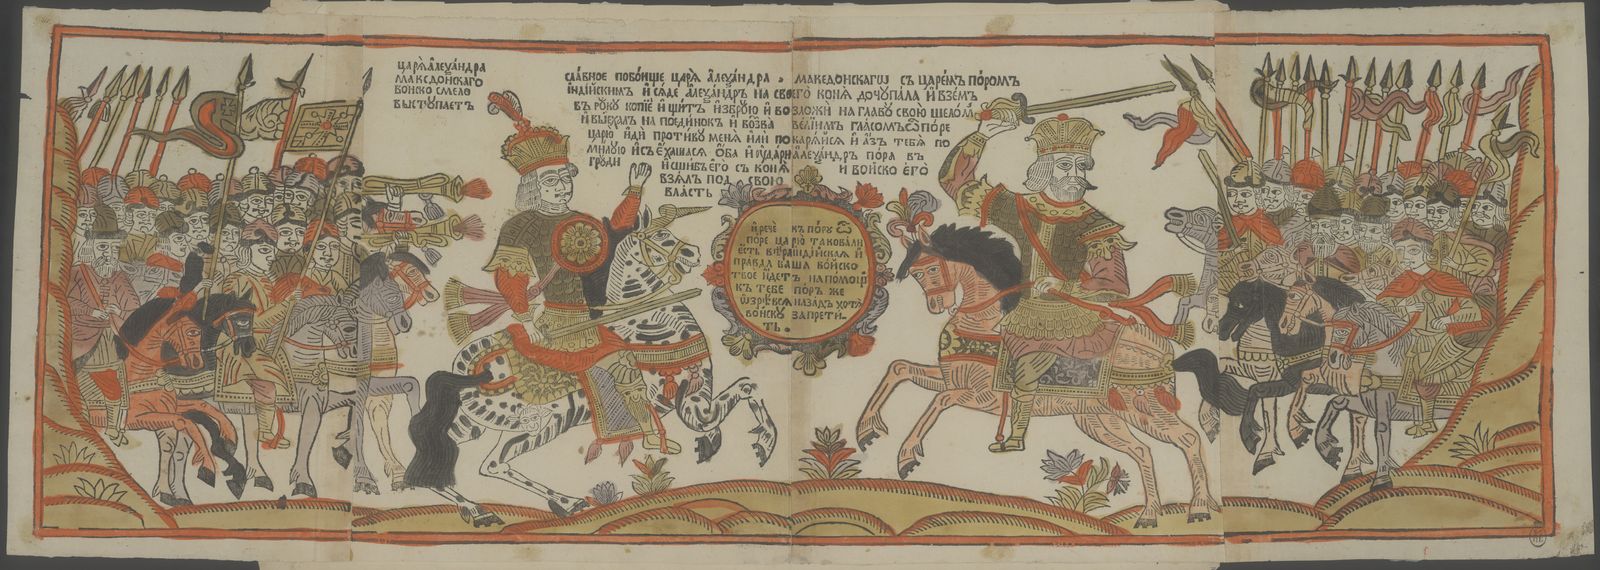 царя алеѯандра
македонскаго
воиско смело
выступаетъ
славное побоище царя алеѯандра македонскагѡ съ царемъ поромъ
індійскимъ и сяде алеѯандръ на своего коня дочупала и вземъ
въ руку копіе и щитъ и зброю и возложи на главу свою шеломъ
и выехалъ на поединокъ и возва велиимъ гласомъ ѡ поре
царю иди противу меня или покарися и азъ тебя по
милую и съехашася оба и удари алеѯандръ пора въ
груди и сшибъ его съ коня и воиско его
взялъ подъ свою
власть
и рече къ пору ѡ
поре царю такова ли
есть вѣра індійская и
правда ваша воиско
твое идетъ на помощ
къ тебе поръ же
ѡзрѣвся назадъ хотя
воиску запрети
ть